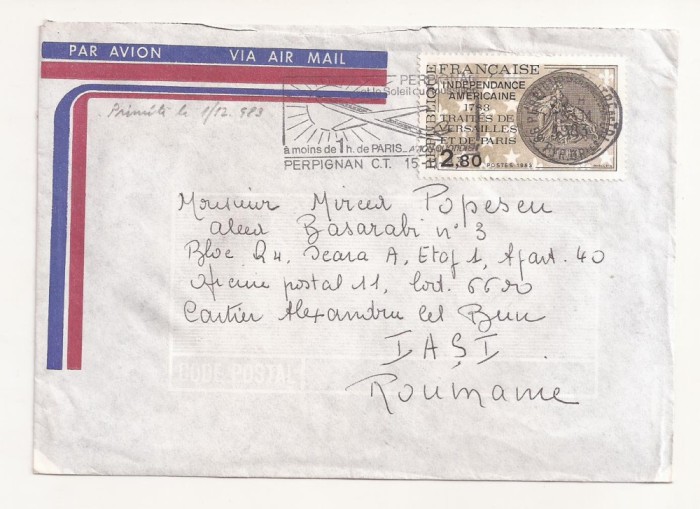 PAR AVION VIA AIR MAIL
Primită la 1/12. 983
PERPIGNAN
et le Soleil
à moins de 1 h. de PARIS
PERPIGNAN C.T. 15-
RÉPUBLIQUE FRANÇAISE
INDÉPENDANCE
AMÉRICAINE
1783
TRAITÉS DE
VERSAILLES
ET DE PARIS
2,80 POSTES 1983
1983
Monsieur Mircea Popescu
aleea Basarabi n° 3
Bloc D4, Scara A, Etaj 1, Apart. 40
Oficiul postal 11, Cod. 6600
Cartier Alexandru cel Bun
IAŞI
Roumanie
CODE POSTAL